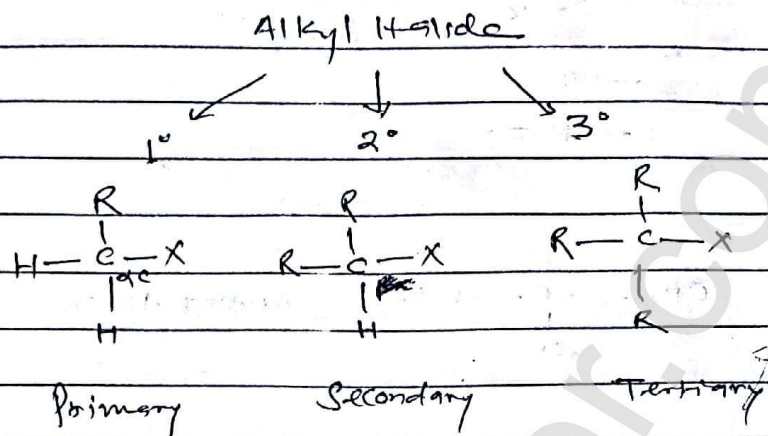 Alkyl Halide
1° 2° 3°
R R R
H—C—X R—C—X R—C—X
αC
H H R
Primary Secondary Tertiary